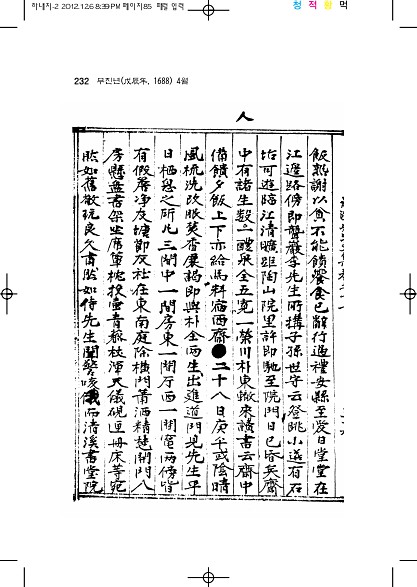 하내지-2 2012.12.6 8:39 PM 페이지85 패럴 입력
청 적 황 먹
232 무진년(戊辰年, 1688) 4월
人
飯熟謝以食不能饋饗食已辭行過禮安縣至愛日堂堂在
江邊路傍即聾巖李先生所搆子孫世守云登眺小選有石
坮可遊陪江清曠距陶山院里許即馳至院門日已昏矣齋
中有諸生數 醴泉全五寬一榮川朴東 來讀書云齋中
備饋夕飯上下亦給馬料宿西齋●二十八日庚午或陰晴
風梳洗改服焚香展謁即與朴全兩生出進道門見先生平
日栖息之所凡三間中一間房東一間厅西一間 兩傍皆
有假 净友塘節友社在東南庭除橫門蕭洒精楚開門入
房懸盖書架坐席簟枕投壺青藜杖渾天儀硯匣冊床等宛
然如舊敬玩良久肅然如侍先生聞警咳 而清溪書堂院